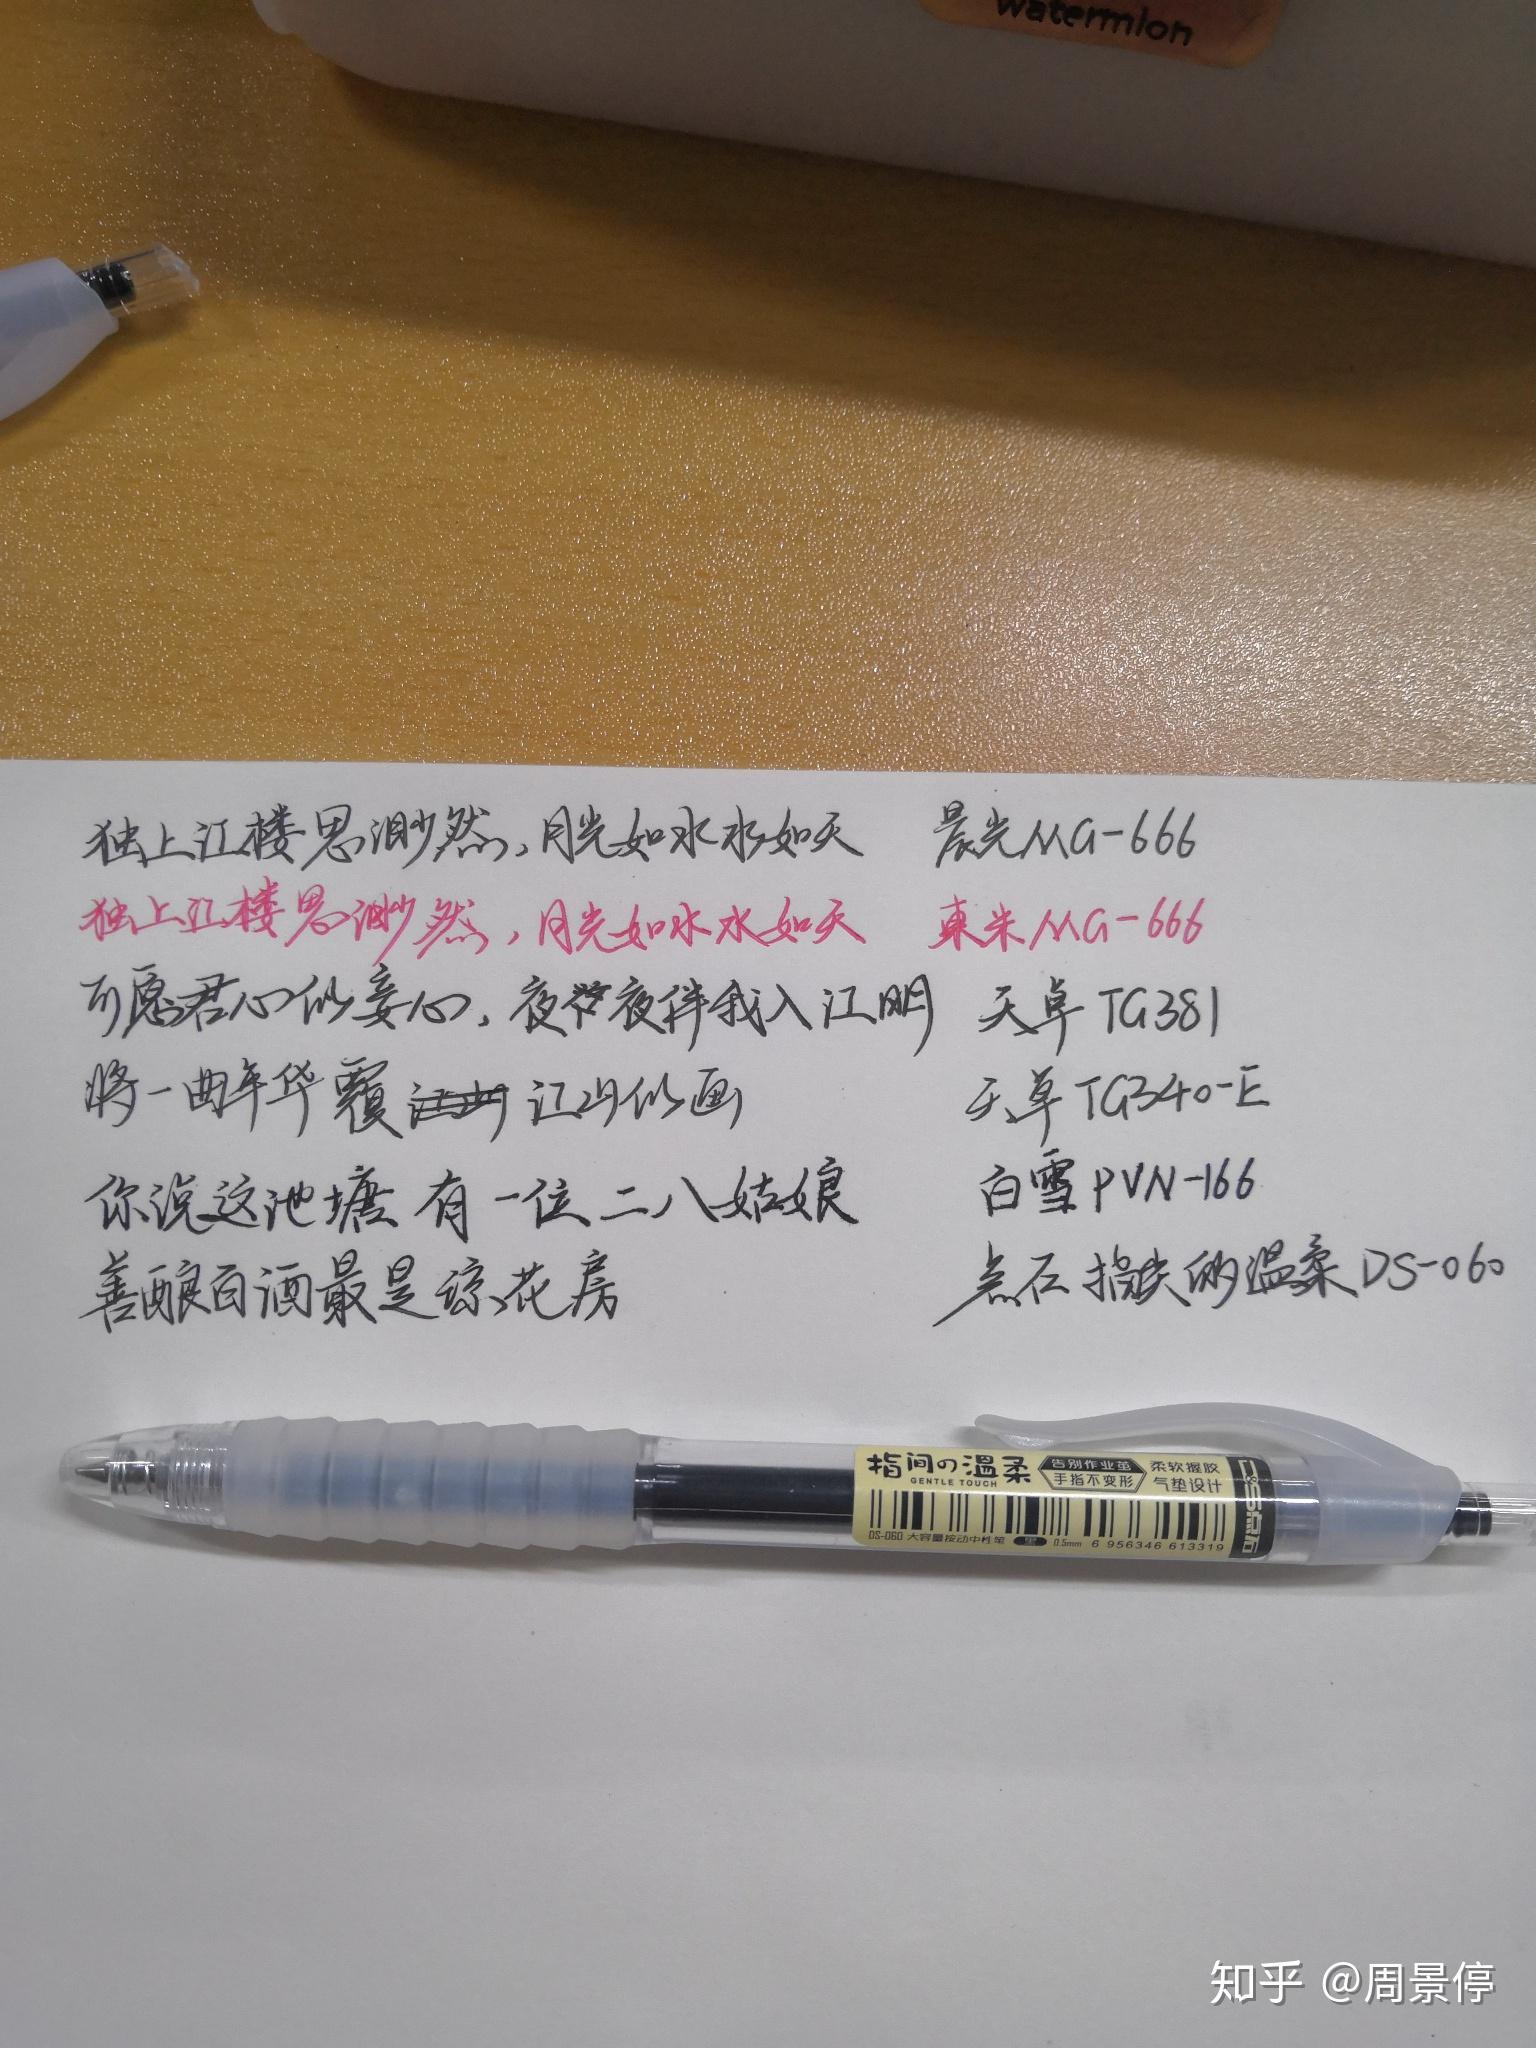 watermlon
独上江楼思渺然,月光如水水如天 晨光MG-666
独上江楼思渺然,月光如水水如天 東米MG-666
可愿君心似妾心,夜夜伴我入江明 天卓TG381
将一曲年华覆 江山似画 天卓TG340-E
你说这池塘有一位二八姑娘 白雪PVN-166
善酿百酒最是琼花房 点石指尖的温柔DS-060
指间の温柔 告别作业茧 柔软握胶
GENTLE TOUCH 手指不变形 气垫设计
DS-060 大容量按动中性笔 黑 0.5mm 6 956346 613319
点石
知乎 @周景停